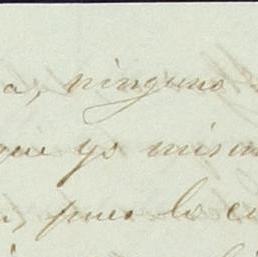 a, ninguno
que yo mism
pues lo cu